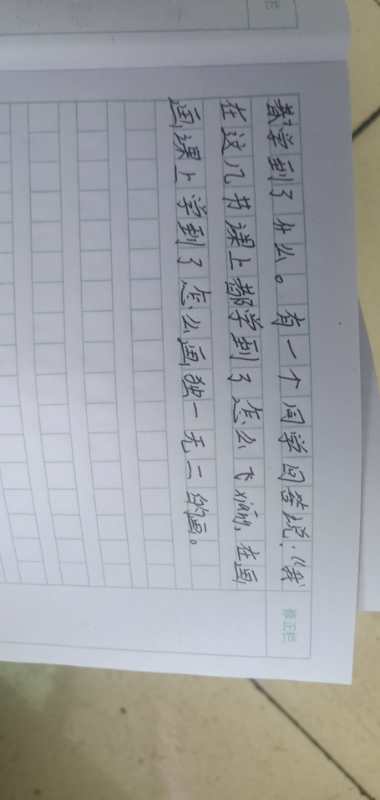 都学到了什么。有一个同学回答说：“我
在这几节课上都学到了怎么飞xiáng，在画
画课上学到了怎么画独一无二的画。
修正栏